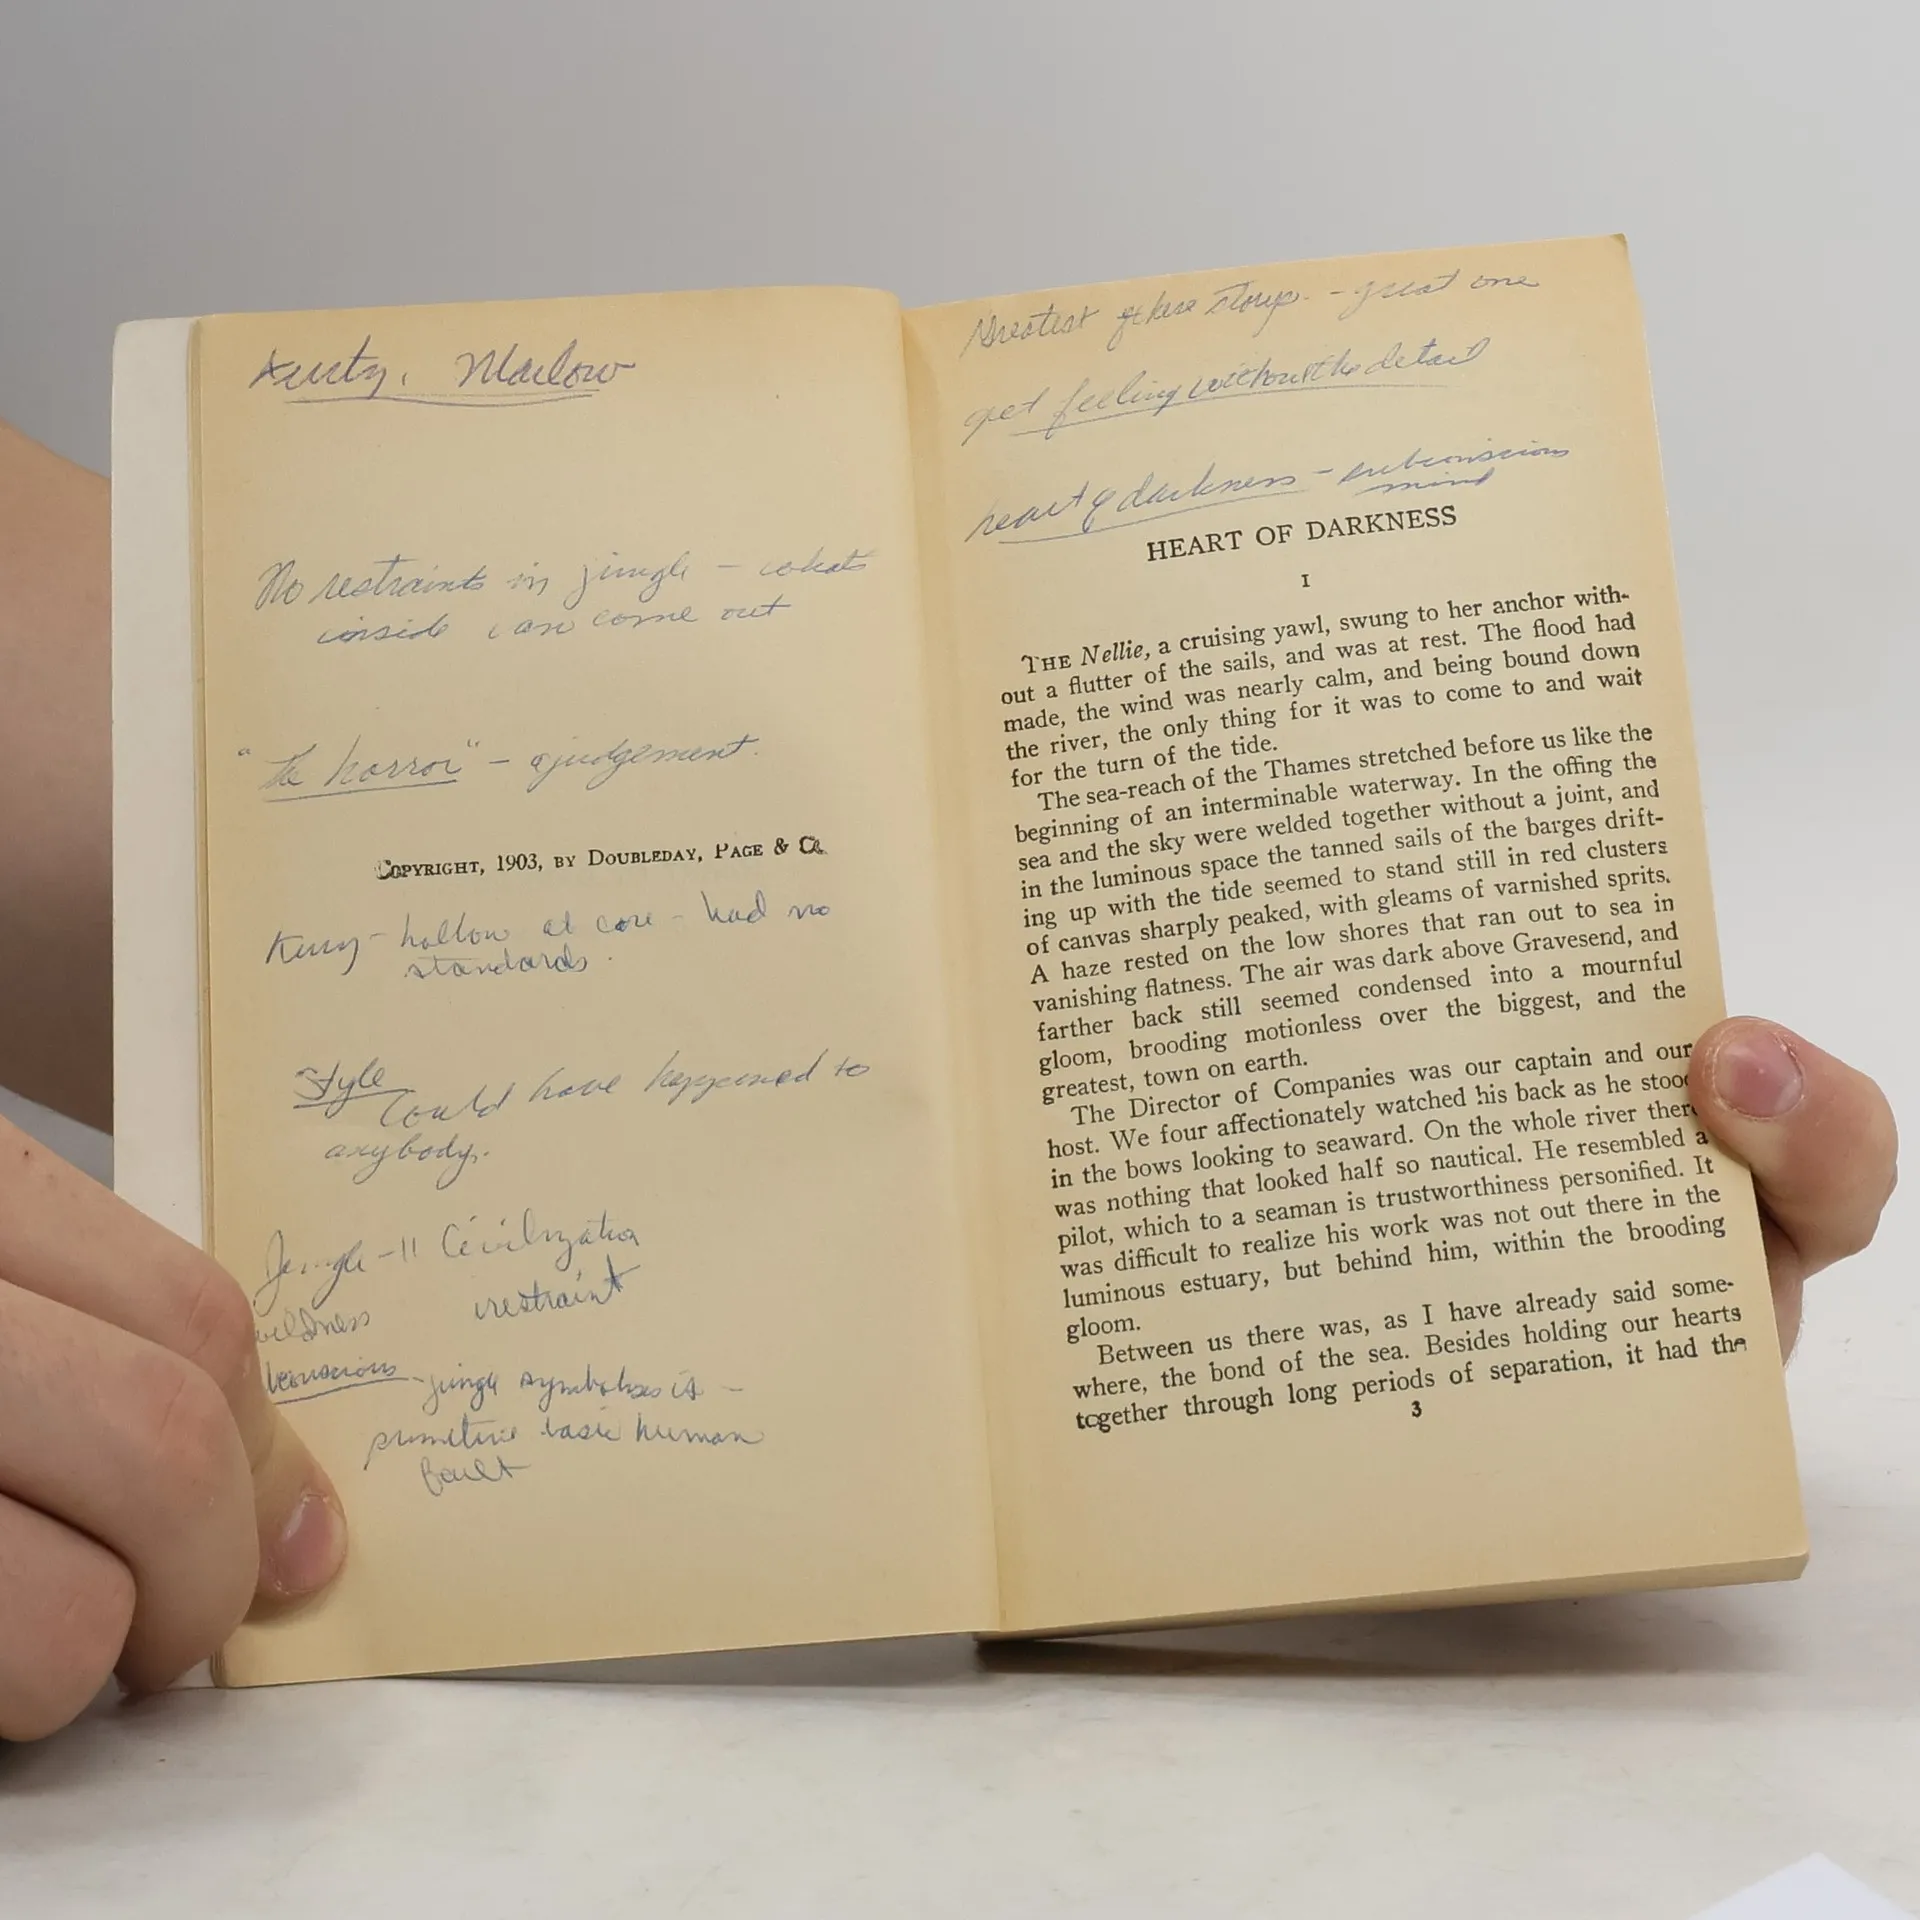 Kurtz, Marlow
No restraints in jungle - whats
inside can come out
"the horror" - a judgement.
COPYRIGHT, 1903, BY DOUBLEDAY, PAGE & Co.
Kurtz - hollow at core - had no
standards.
Style
Could have happened to
anybody.
Jungle - || Civilization
wildness restraint
jungle symbolises it -
primitive basic human
fault
Greatest of these storys. - great one
get feeling without the detail
heart of darkness - subconscious
mind
HEART OF DARKNESS
I
THE Nellie, a cruising yawl, swung to her anchor with-
out a flutter of the sails, and was at rest. The flood had
made, the wind was nearly calm, and being bound down
the river, the only thing for it was to come to and wait
for the turn of the tide.
The sea-reach of the Thames stretched before us like the
beginning of an interminable waterway. In the offing the
sea and the sky were welded together without a joint, and
in the luminous space the tanned sails of the barges drift-
ing up with the tide seemed to stand still in red clusters
of canvas sharply peaked, with gleams of varnished sprits.
A haze rested on the low shores that ran out to sea in
vanishing flatness. The air was dark above Gravesend, and
farther back still seemed condensed into a mournful
gloom, brooding motionless over the biggest, and the
greatest, town on earth.
The Director of Companies was our captain and our
host. We four affectionately watched his back as he stood
in the bows looking to seaward. On the whole river there
was nothing that looked half so nautical. He resembled a
pilot, which to a seaman is trustworthiness personified. It
was difficult to realize his work was not out there in the
luminous estuary, but behind him, within the brooding
gloom.
Between us there was, as I have already said some-
where, the bond of the sea. Besides holding our hearts
together through long periods of separation, it had the
3